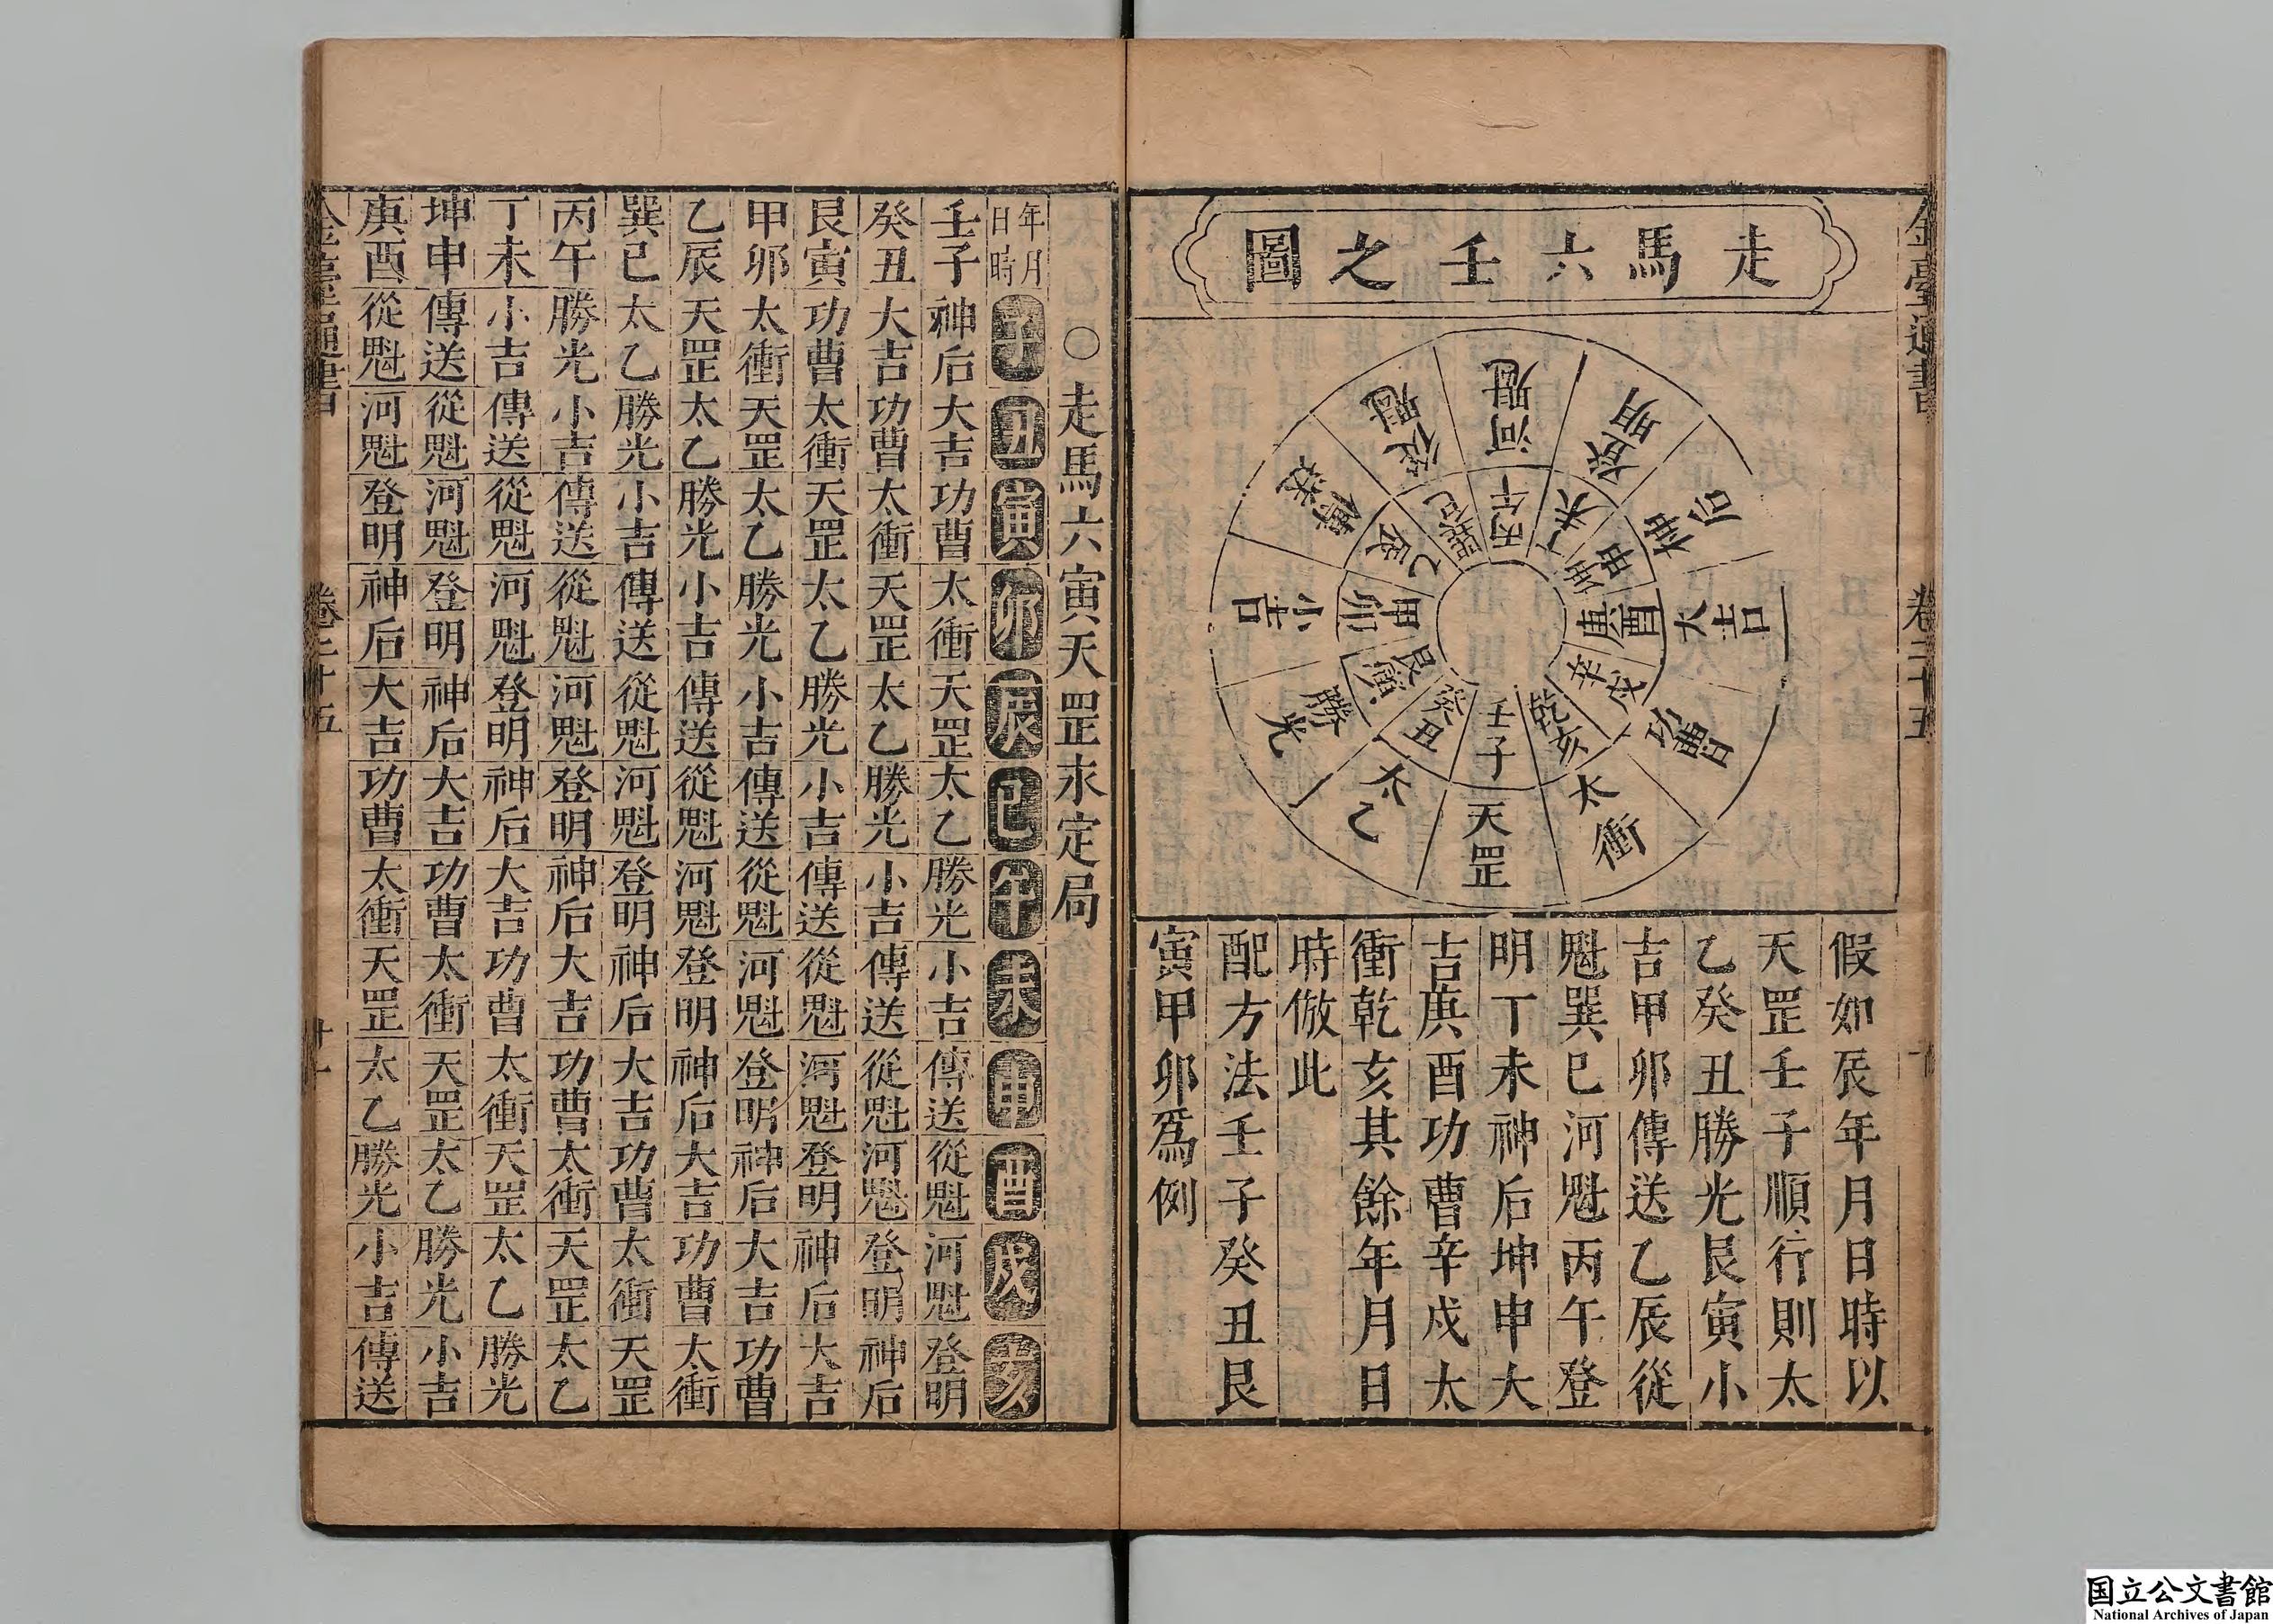 金臺通書 卷二十五
走馬六壬之圖
河魁
登明
神后
大吉
功曹
太衝
天罡
太乙
勝光
小吉
傳送
從魁
丙午
丁未
坤申
庚酉
辛戌
乾亥
壬子
癸丑
艮寅
甲卯
乙辰
巽巳
假如辰年月日時以
天罡壬子順行則太
乙癸丑勝光艮寅小
吉甲卯傳送乙辰從
魁巽巳河魁丙午登
明丁未神后坤申大
吉庚酉功曹辛戌太
衝乾亥其餘年月日
時倣此
配方法壬子癸丑艮
寅甲卯爲例
○走馬六寅天罡永定局
年月日時 子 丑 寅 卯 辰 巳 午 未 申 酉 戌 亥
壬子 神后 大吉 功曹 太衝 天罡 太乙 勝光 小吉 傳送 從魁 河魁 登明
癸丑 大吉 功曹 太衝 天罡 太乙 勝光 小吉 傳送 從魁 河魁 登明 神后
艮寅 功曹 太衝 天罡 太乙 勝光 小吉 傳送 從魁 河魁 登明 神后 大吉
甲卯 太衝 天罡 太乙 勝光 小吉 傳送 從魁 河魁 登明 神后 大吉 功曹
乙辰 天罡 太乙 勝光 小吉 傳送 從魁 河魁 登明 神后 大吉 功曹 太衝
巽巳 太乙 勝光 小吉 傳送 從魁 河魁 登明 神后 大吉 功曹 太衝 天罡
丙午 勝光 小吉 傳送 從魁 河魁 登明 神后 大吉 功曹 太衝 天罡 太乙
丁未 小吉 傳送 從魁 河魁 登明 神后 大吉 功曹 太衝 天罡 太乙 勝光
坤申 傳送 從魁 河魁 登明 神后 大吉 功曹 太衝 天罡 太乙 勝光 小吉
庚酉 從魁 河魁 登明 神后 大吉 功曹 太衝 天罡 太乙 勝光 小吉 傳送
金臺通書 卷二十五
国立公文書館
National Archives of Japan